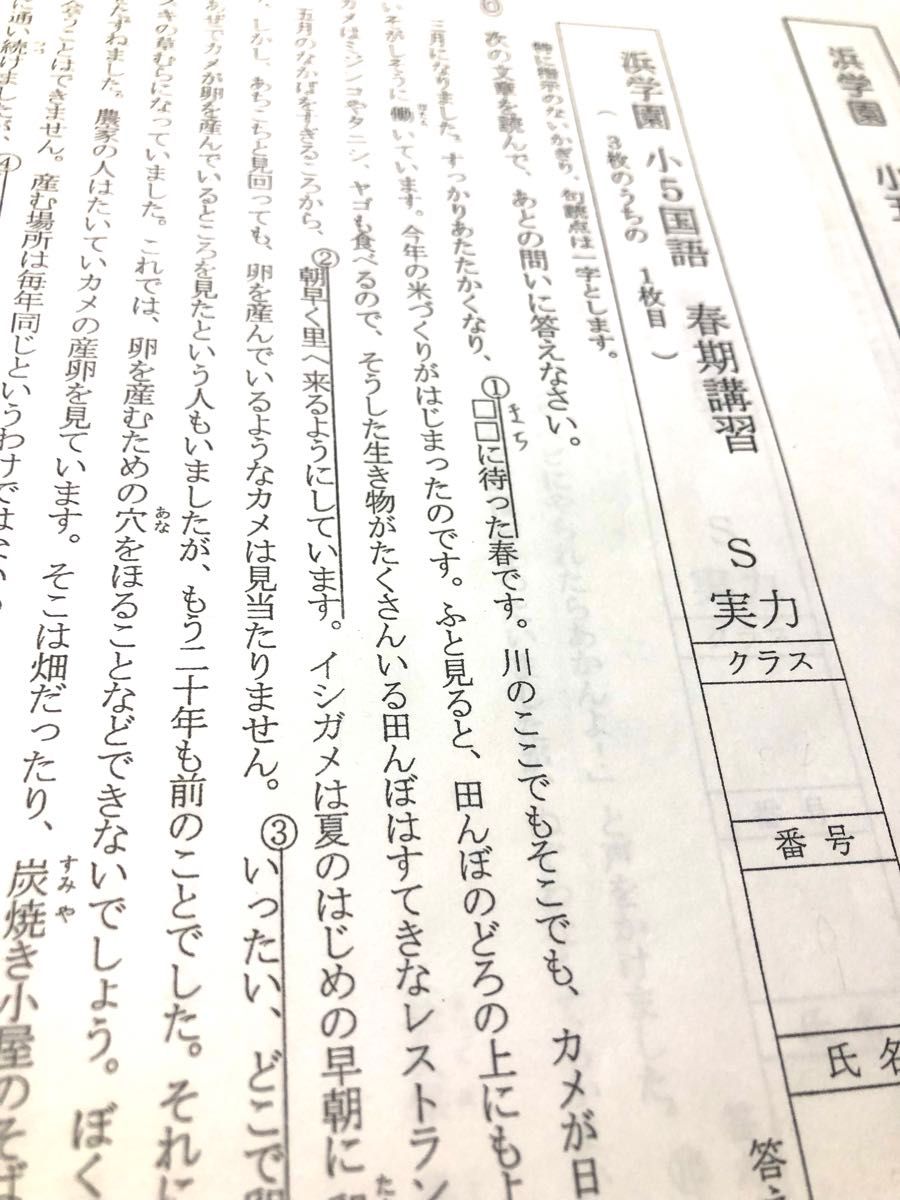 浜学園
浜学園 小5国語 春期講習 S 実力
(3枚のうちの 1枚目)
クラス
番号
氏名
答
特に指示のないかぎり、句読点は一字とします。
次の文章を読んで、あとの問いに答えなさい。
まち
三月になりました。すっかりあたたかくなり、①□□に待った春です。川のここでもそこでも、カメが日
いそがしそうに働いています。今年の米づくりがはじまったのです。ふと見ると、田んぼのどろの上にもよ
カメはミジンコやタニシ、ヤゴも食べるので、そうした生き物がたくさんいる田んぼはすてきなレストラン
五月のなかばをすぎるころから、②朝早く里へ来るようにしています。イシガメは夏のはじめの早朝に
しかし、あちこちと見回っても、卵を産んでいるようなカメは見当たりません。③いったい、どこで卵
あぜでカメが卵を産んでいるところを見たという人もいましたが、もう二十年も前のことでした。それに
スキの草むらになっていました。これでは、卵を産むための穴をほることなどできないでしょう。ぼく
あな
たずねました。農家の人はたいていカメの産卵を見ています。そこは畑だったり、炭焼き小屋のそば
すみや
うことはできません。産む場所は毎年同じというわけではない
に通い続けましたが、④